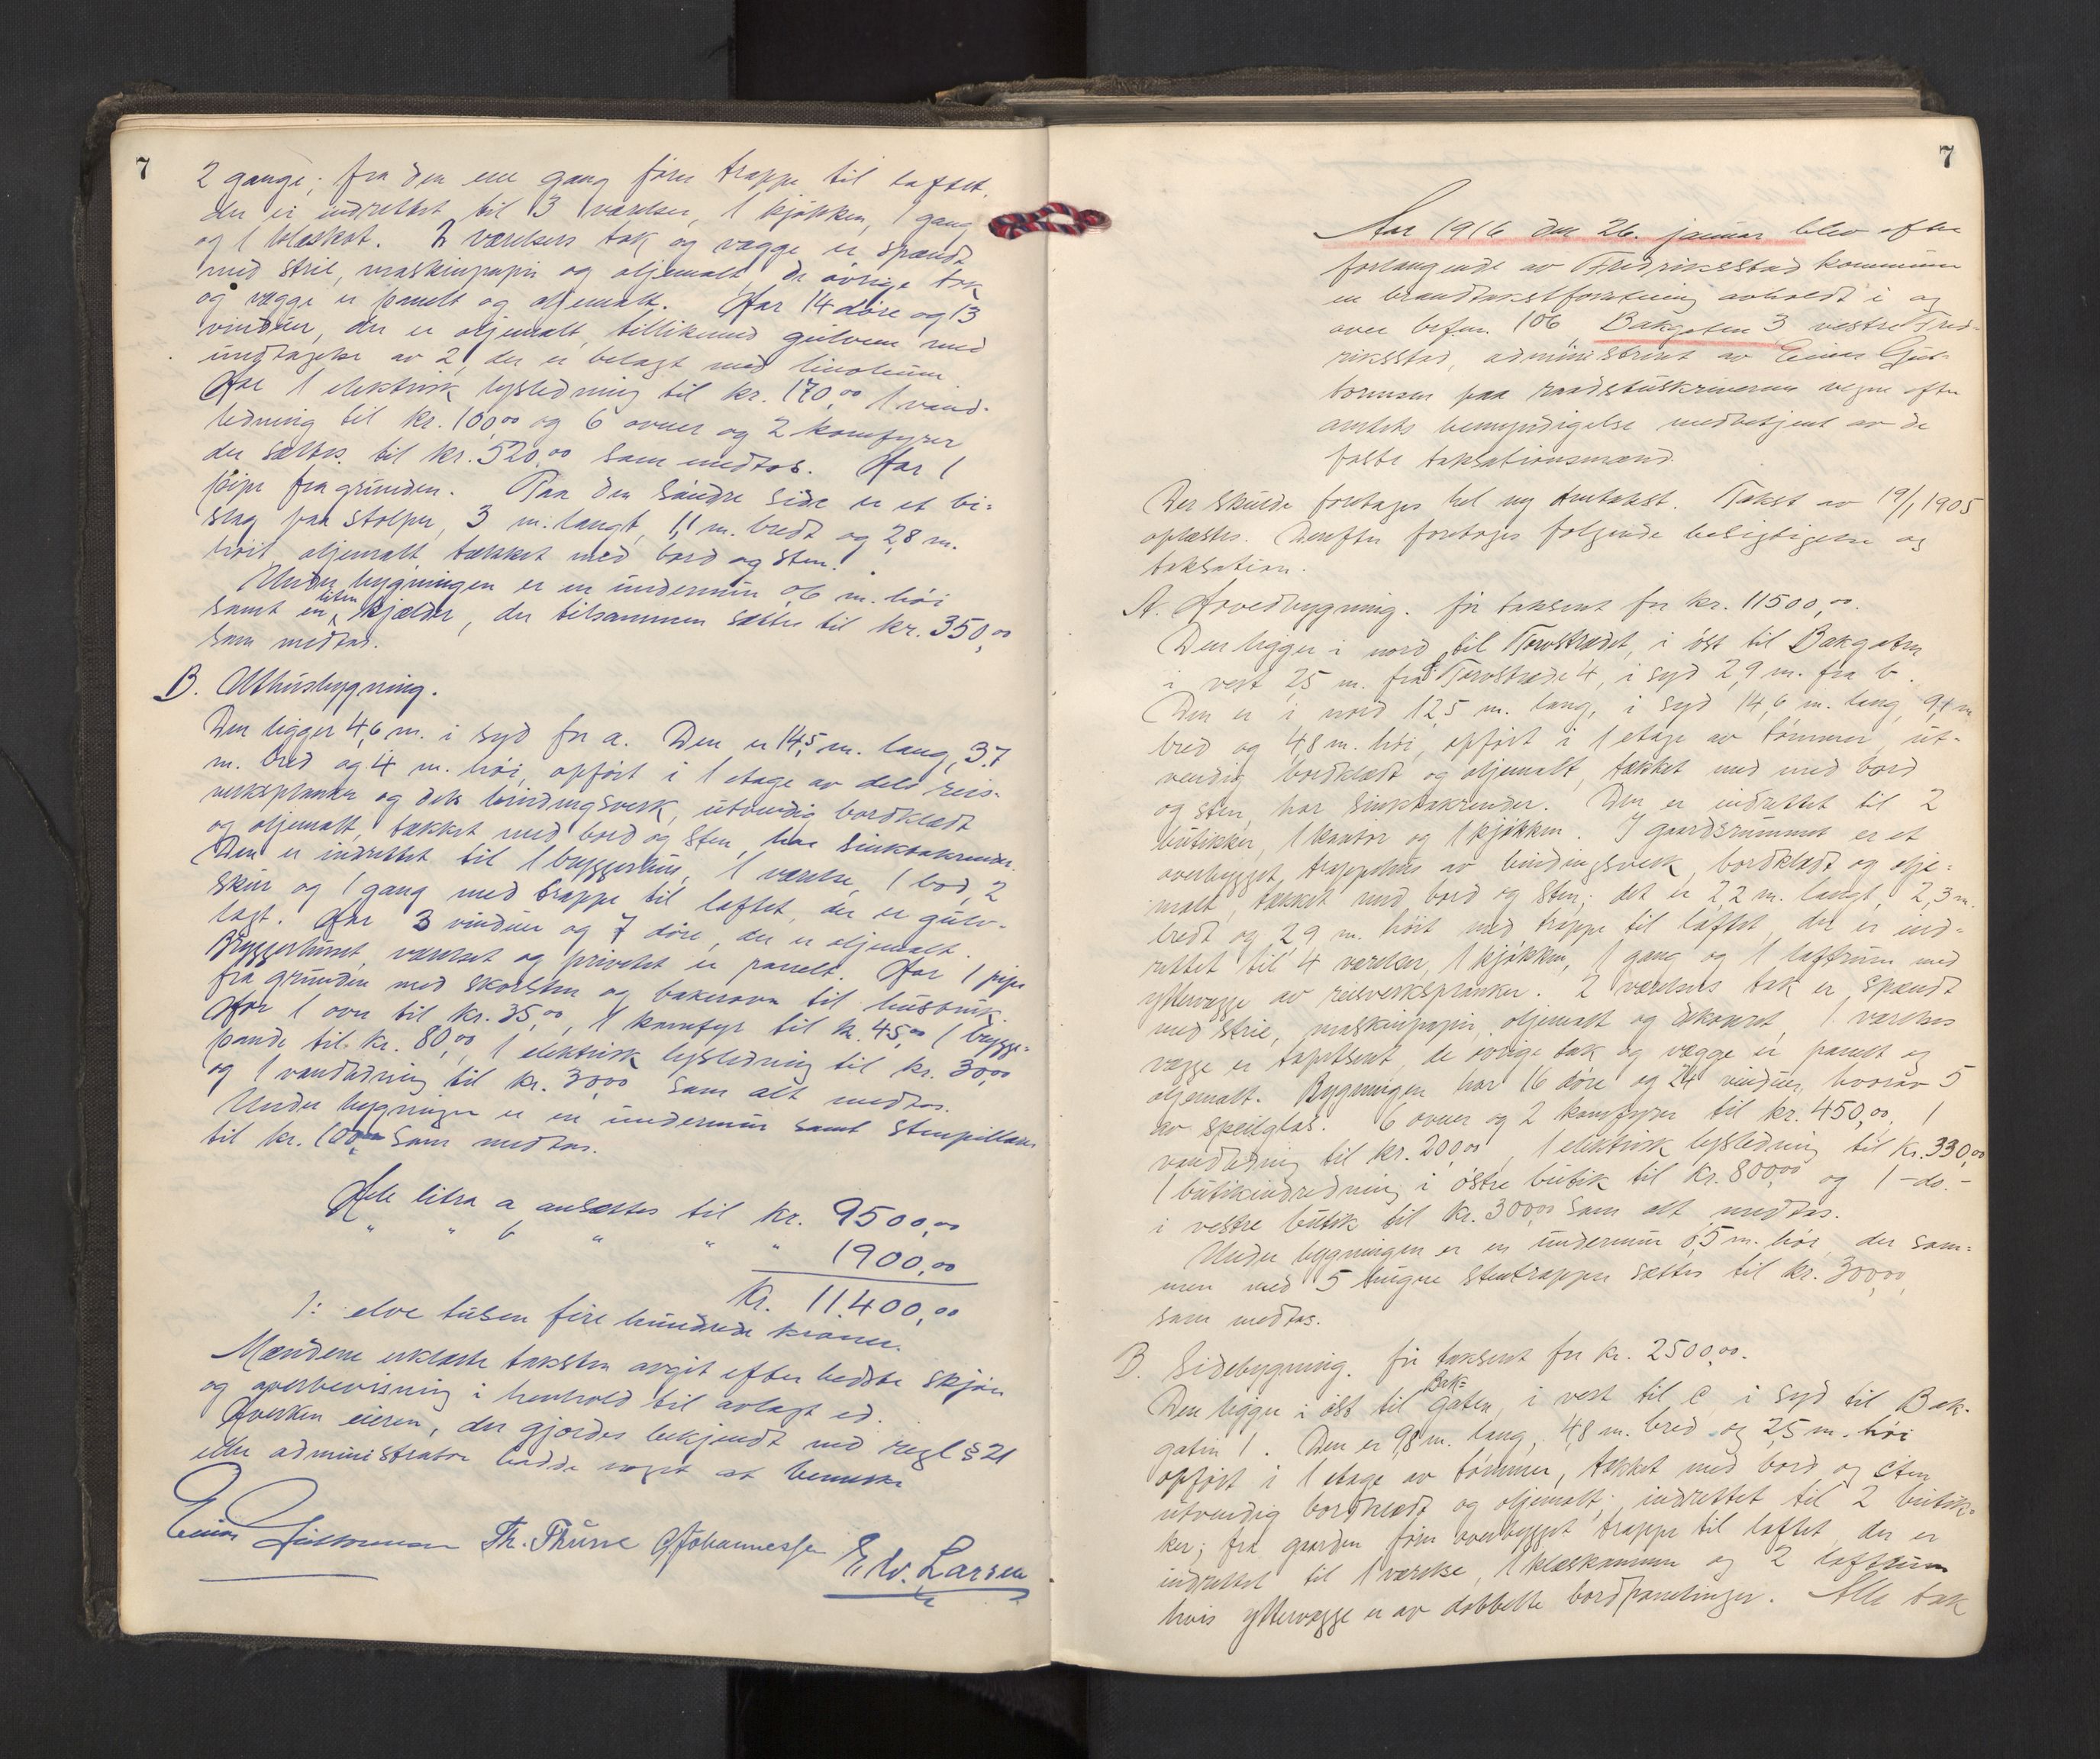 7
2 gange; fra den ene gang fører trappe til loftet,
der er indrettet til 3 værelser, 1 kjøkken, 1 gang
og 1 klæskot. 2 værelsers tak og vægge er spændt
med strie, maskinpapir og oljemalt, de øvrige tak
og vægge er panelt og oljemalt. Har 14 døre og 13
vinduer, der er oljemalt, tillikemed gulvene med
undtagelse av 2, der er belagt med linoleum
Har 1 elektrisk lysledning til kr. 170,00 1 vand-
ledning til kr. 100,00 og 6 ovner og 2 komfyrer
der sættes til kr. 520,00 som medtas. Har 1
pipe fra grunden. Paa den søndre side er et bi-
slag paa stolper, 3 m. langt, 1,1 m. bredt og 2,8 m.
høit oljemalt, tækket med bord og sten.
Under bygningen er en undermur 0,6 m. høi
samt en liten kjælder, der tilsammen sættes til kr. 350,00
som medtas.
B. Uthusbygning.
Den ligger 4,6 m. i syd for a. Den er 14,5 m. lang, 3,7
m. bred og 4 m. høi, opført i 1 etage av dels reis-
verksplanker og dels bindingsverk, utvendig bordklædt
og oljemalt, tækket med bord og sten, har sinktakrender.
Den er indrettet til 1 bryggerhus, 1 værelse, 1 bod, 2
skur og 1 gang med trappe til loftet, der er gulv-
lagt. Har 3 vinduer og 7 døre, der er oljemalt.
Bryggerhuset, værelset og privetet er panelt. Har 1 pipe
fra grunden med skorsten og bakerovn til husbruk.
Har 1 ovn til kr. 35,00, 1 komfyr til kr. 45,00 1 brygge-
pande til kr. 80,00, 1 elektrisk lysledning til kr. 30,00
og 1 vandledning til kr. 30,00 som alt medtas.
Under bygningen er en undermur samt stenpillarer
til kr. 100,00 som medtas.
Hele litra a ansættes til kr. 9500,00
" " b " " " 1900,00
Kr. 11.400,00
): elve tusen fire hundrede kroner.
Mændene erklærte taksten avgit efter bedste skjøn
og overbevisning i henhold til avlagt ed.
Hverken eieren, der gjordes bekjendt med regl § 21
eller administrator hadde noget at bemerke
Einar Guttormsen Th. Thürre G. Johannessen Edv. Larsen
7
Aar 1916 den 26. januar blev efter
forlangende av Fredriksstad kommune
en brandtakstforretning avholdt i og
over br.f.nr. 106 Bakgaten 3 vestre Fred-
riksstad, administrert av Einar Gut-
tormsen paa raadstuskriverens vegne efter
amtets bemyndigelse medbetjent av de
faste taksationsmænd.
Der skulde foretages hel ny omtakst. Takst av 19/1 1905
oplæstes. Derefter foretoges følgende besigtigelse og
taksation.
A. Hovedbygning. før taksert for kr. 11500,00.
Den ligger i nord til Torvstrædet, i øst til Bakgaten
i vest 2,5 m. fra Torvstræde 4, i syd 2,9 m. fra b.
Den er i nord 12,5 m. lang, i syd 14,6 m. lang, 9,4 m
bred og 4,8 m. høi, opført i 1 etage av tømmer, ut-
vendig bordklædt og oljemalt, tækket med med bord
og sten, har sinktakrender. Den er indrettet til 2
butikker, 1 kontor og 1 kjøkken. I gaardsrummet er et
overbygget trappehus av bindingsverk, bordklædt og olje-
malt, tækket med bord og sten; det er 2,2 m. langt, 2,3 m.
bredt og 2,9 m. høit med trappe til loftet, der er ind-
rettet til 4 værelser, 1 kjøkken, 1 gang og 1 loftrum med
yttervægge av reisverksplanker. 2 værelsers tak er spændt
med strie, maskinpapir, oljemalt og dekorert, 1 værelses
vægge er tapetsert, de øvrige tak og vægge er panelt og
oljemalt. Bygningen har 16 døre og 24 vinduer, hvorav 5
av speilglas. 6 ovner og 2 komfyrer til kr. 450,00, 1
vandledning til kr. 200,00, 1 elektrisk lysledning til kr. 330,00
1 butikindredning i østre butik til kr. 800,00 og 1 -do.-
i vestre butik til kr. 300,00 som alt medtas.
Under bygningen er en undermur 0,5 m. høi, der sam-
men med 5 tugne stentrapper sættes til kr. 300,00,
som medtas.
B. Sidebygning. før taksert for kr. 2500,00.
Den ligger i øst til Bak-gaten, i vest til c, i syd til Bak-
gaten 1. Den er 9,8 m. lang, 4,8 m. bred og 2,5 m. høi
opført i 1 etage av tømmer, tækket med bord og sten
utvendig bordklædt og oljemalt; indrettet til 2 butik-
ker; fra gaarden fører overbygget trappe til loftet, der er
indrettet til 1 værelse, 1 klæskammer og 2 loftsrum
hvis yttervægge er av dobbelte bordpanelinger. Alle tak